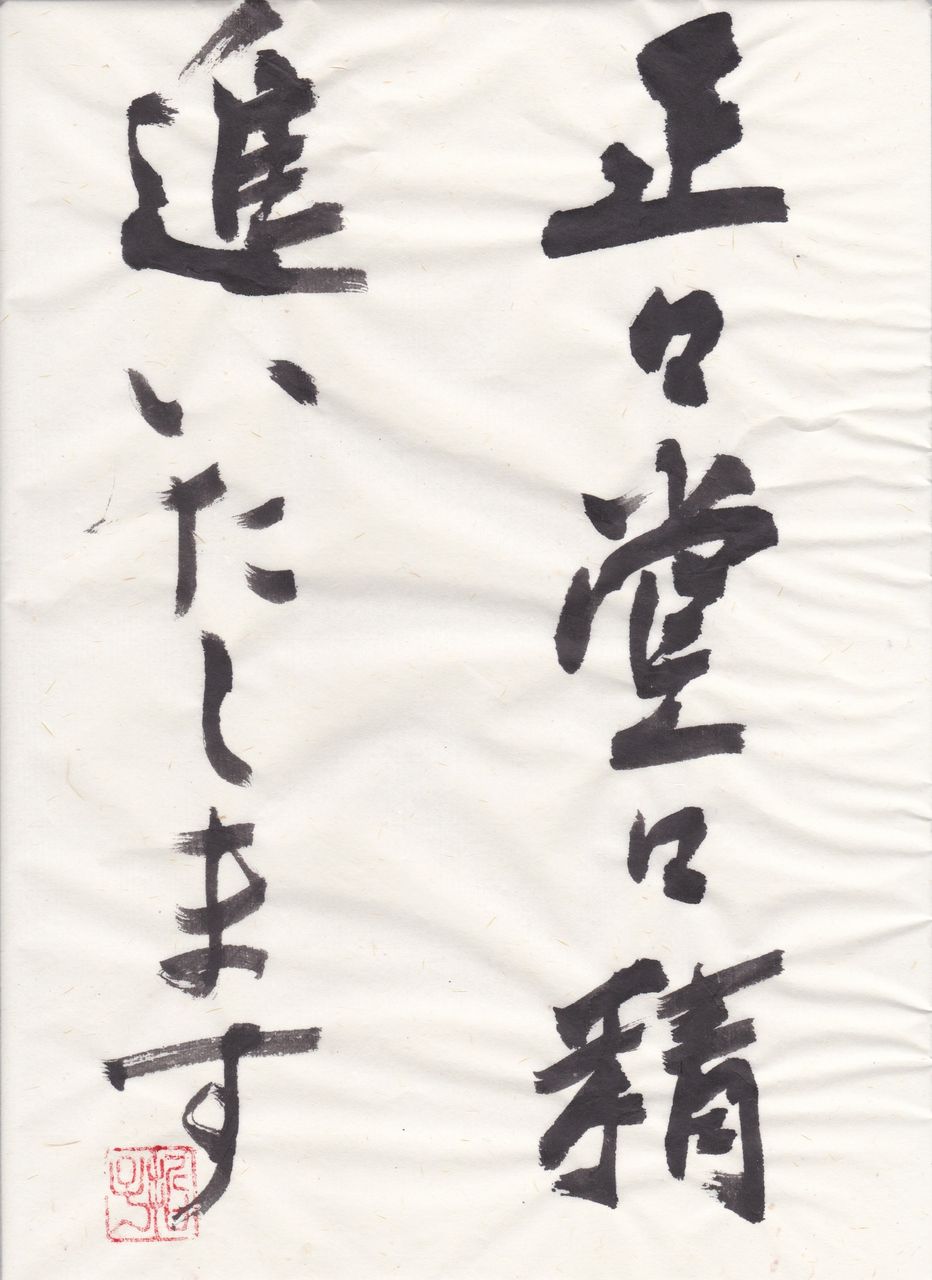 正々堂々精
進いたします